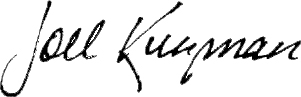 Joel Kurzman